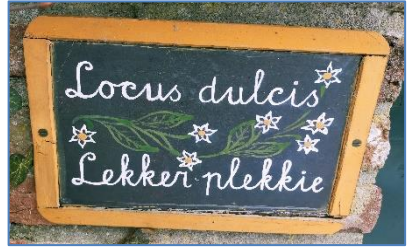 Locus dulcis
Lekker plekkie